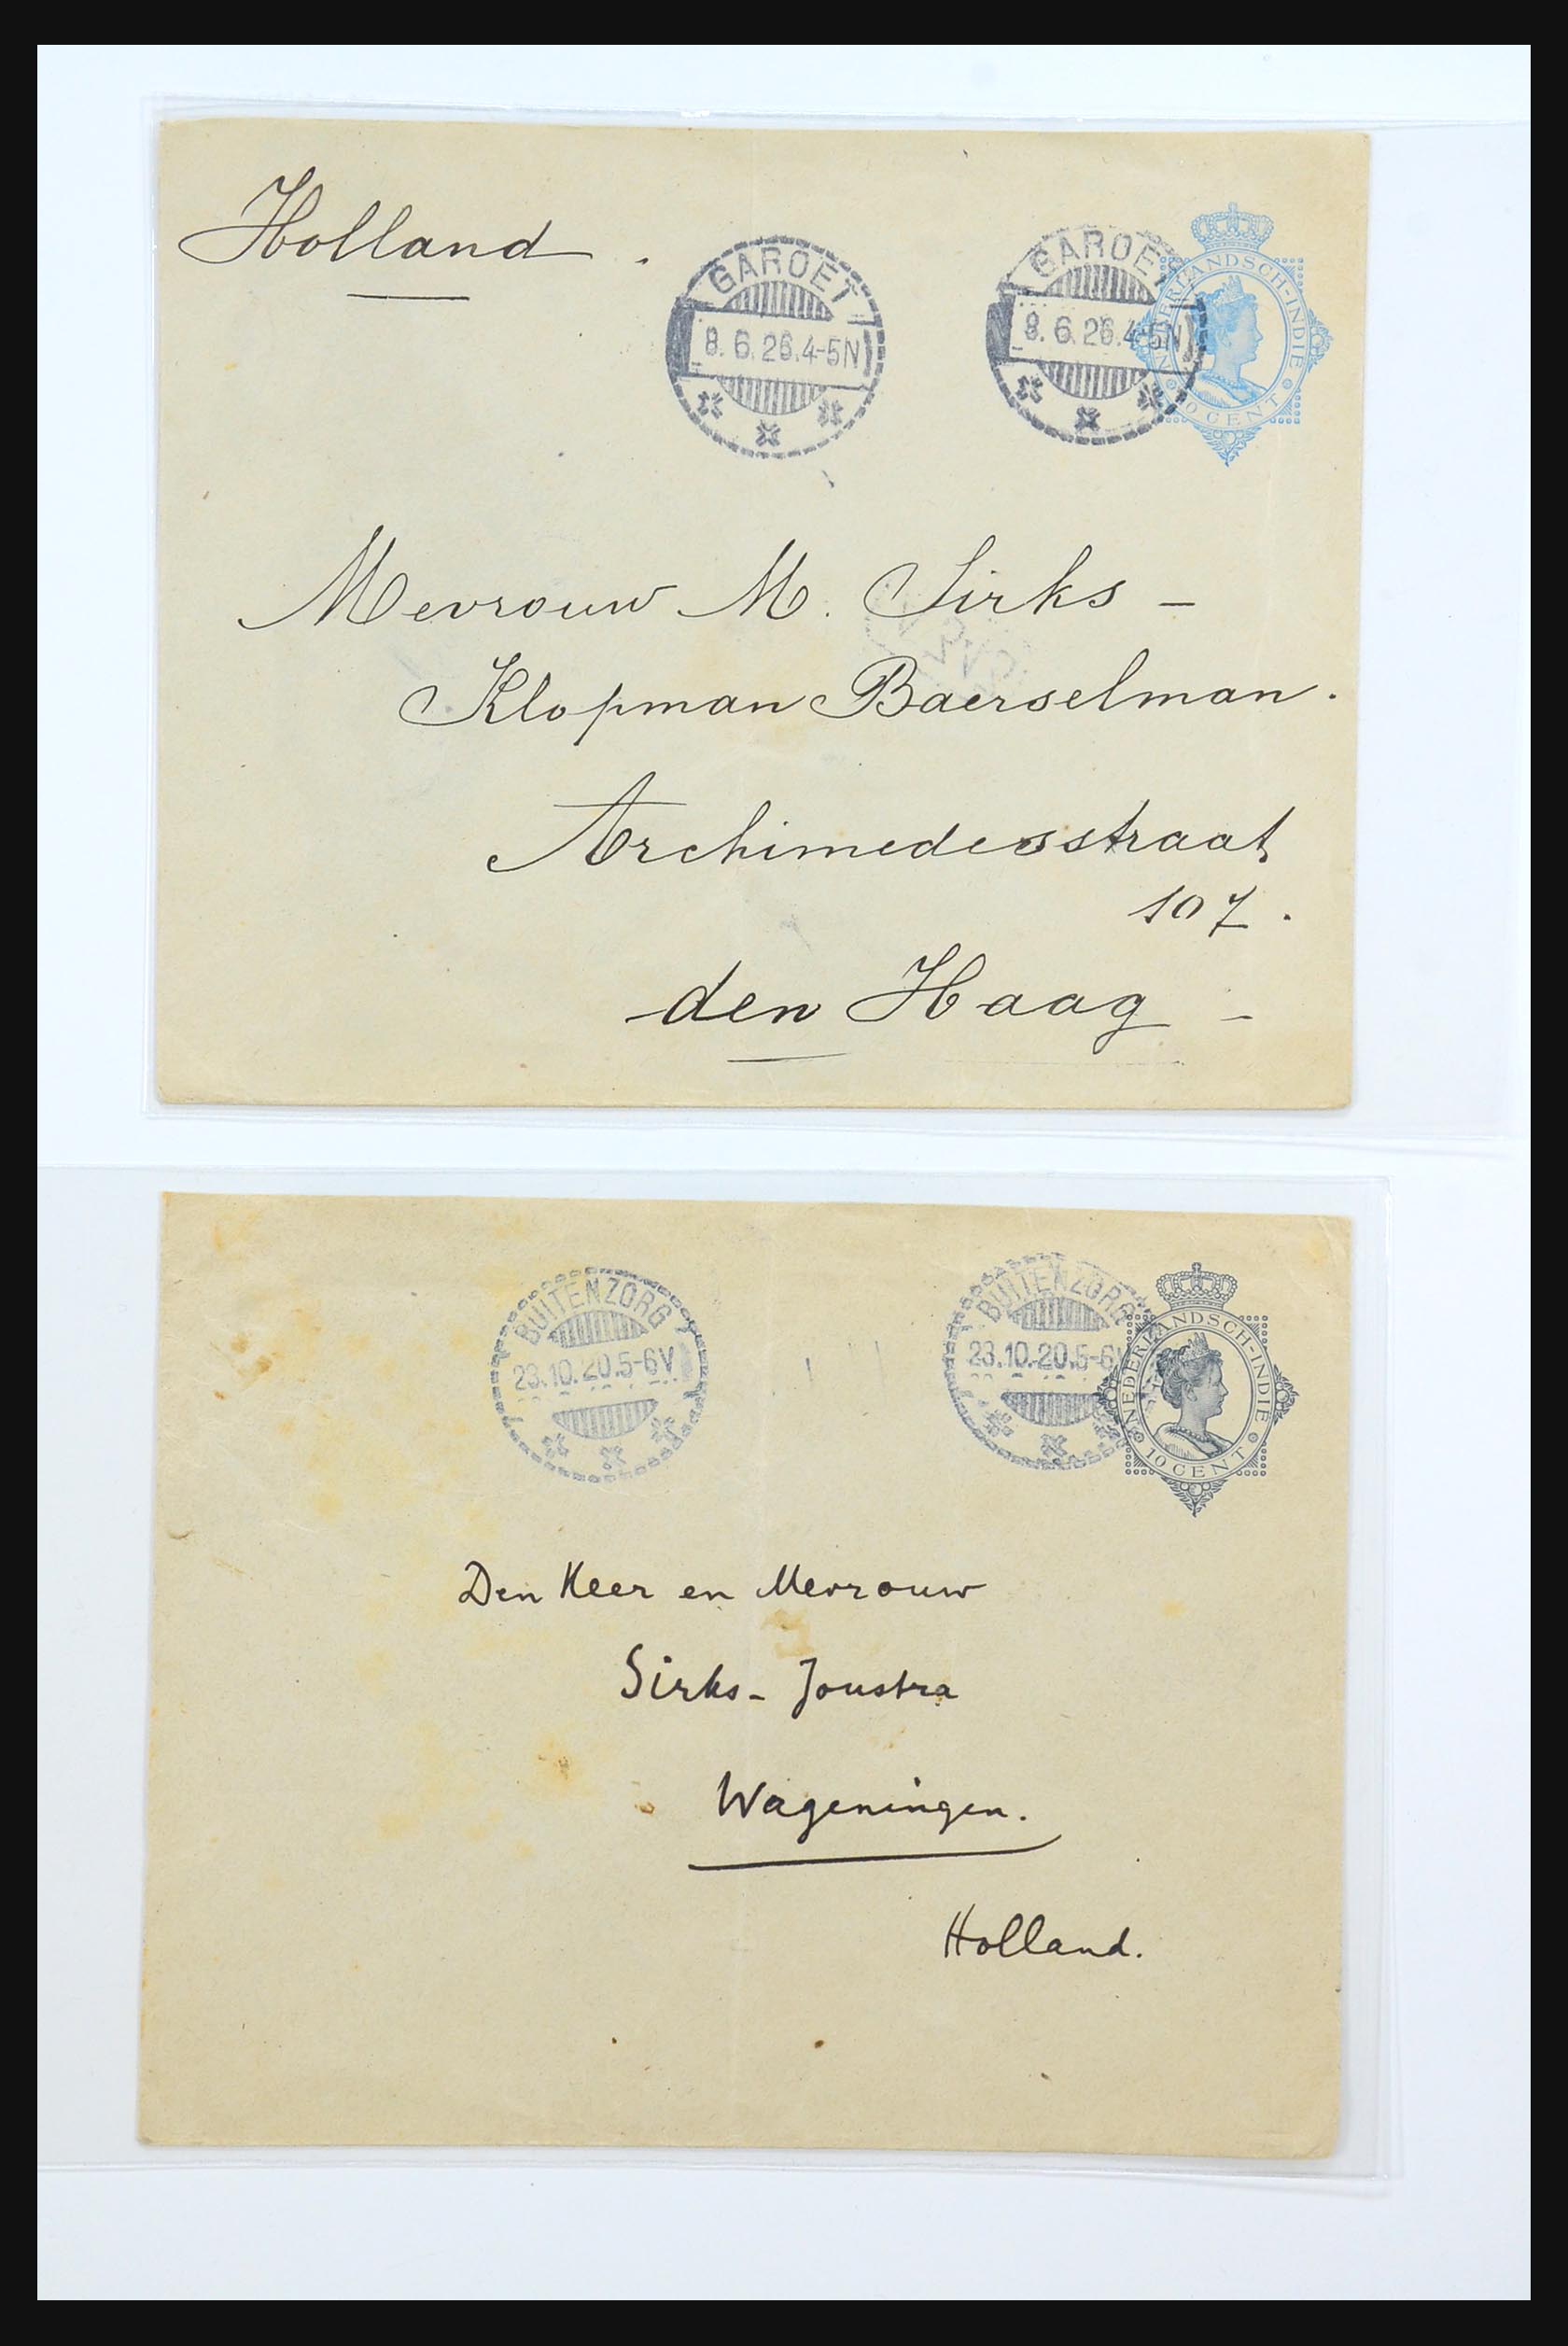 Holland.
GAROET
8.6.26.4-5N
GAROET
8.6.26.4-5N
NEDERLANDSCH-INDIE
CENT
Mevrouw M. Sirks -
Klopman Baerselman.
Archimedesstraat
107.
den Haag -
BUITENZORG
23.10.20.5-6V
BUITENZORG
23.10.20.5-6V
NEDERLANDSCH-INDIE
10 CENT
Den Heer en Mevrouw
Sirks - Joustra
Wageningen.
Holland.